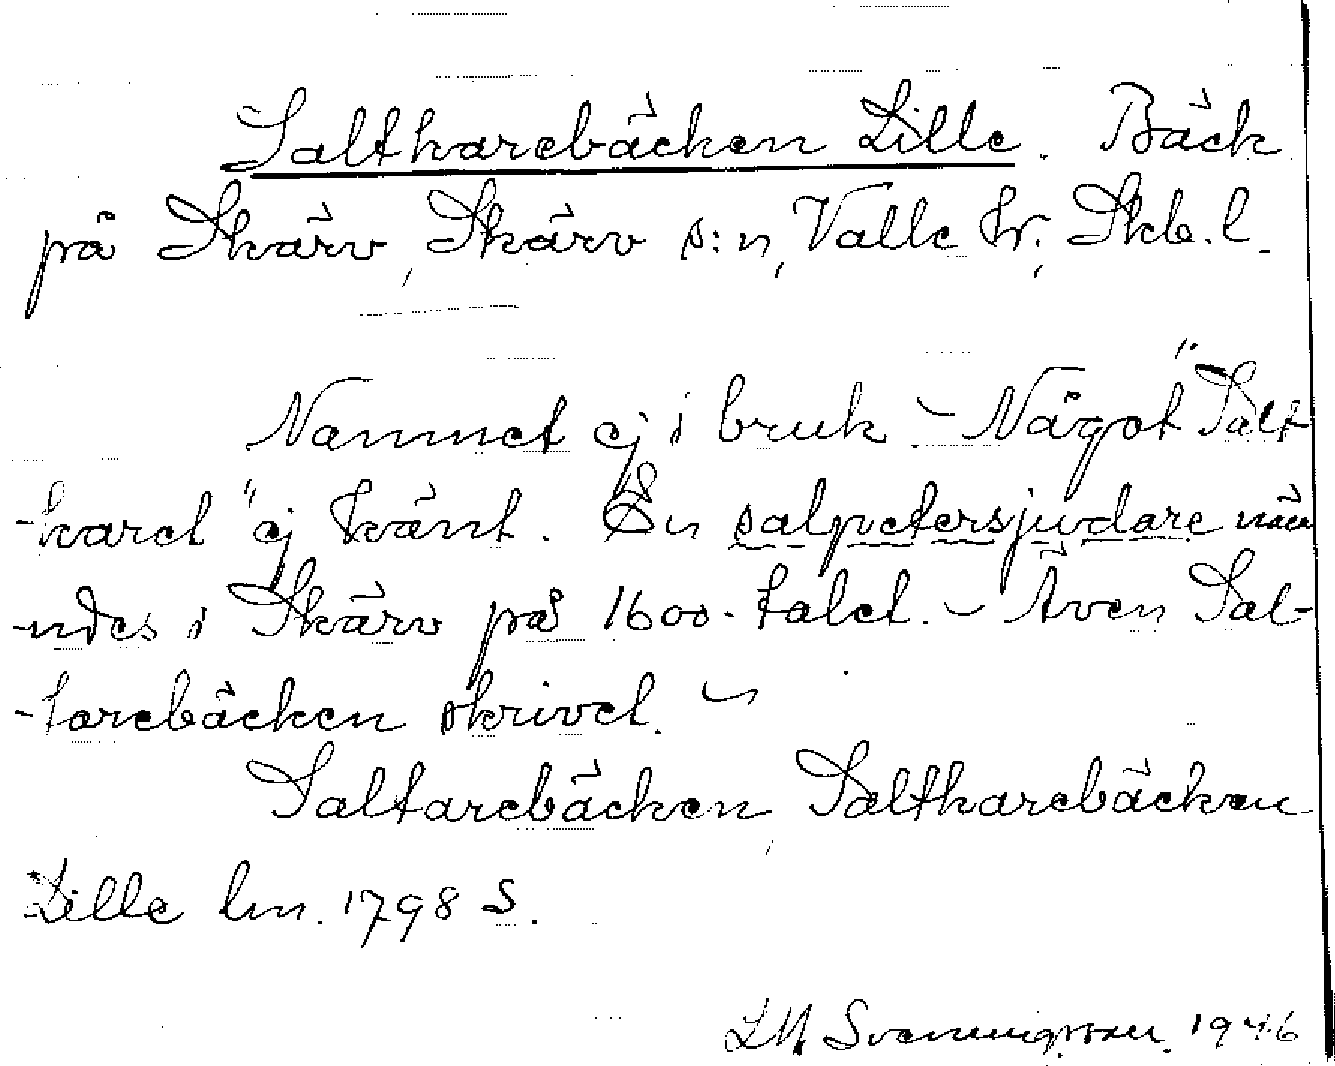 Saltkarebäcken Lille. Bäck
på Skärv, Skärv s:n, Valle hr, Skb. l.
Namnet ej i bruk – Något "Salt-
-karet" ej känt. En salpetersjudare näm-
-ndes i Skärv på 1600-talet. – Även Sal-
-tarebäcken skrivet. –
Saltarebäcken, Saltkarebäcken
Lille lm. 1798 S.
LM Svenungsson 1946